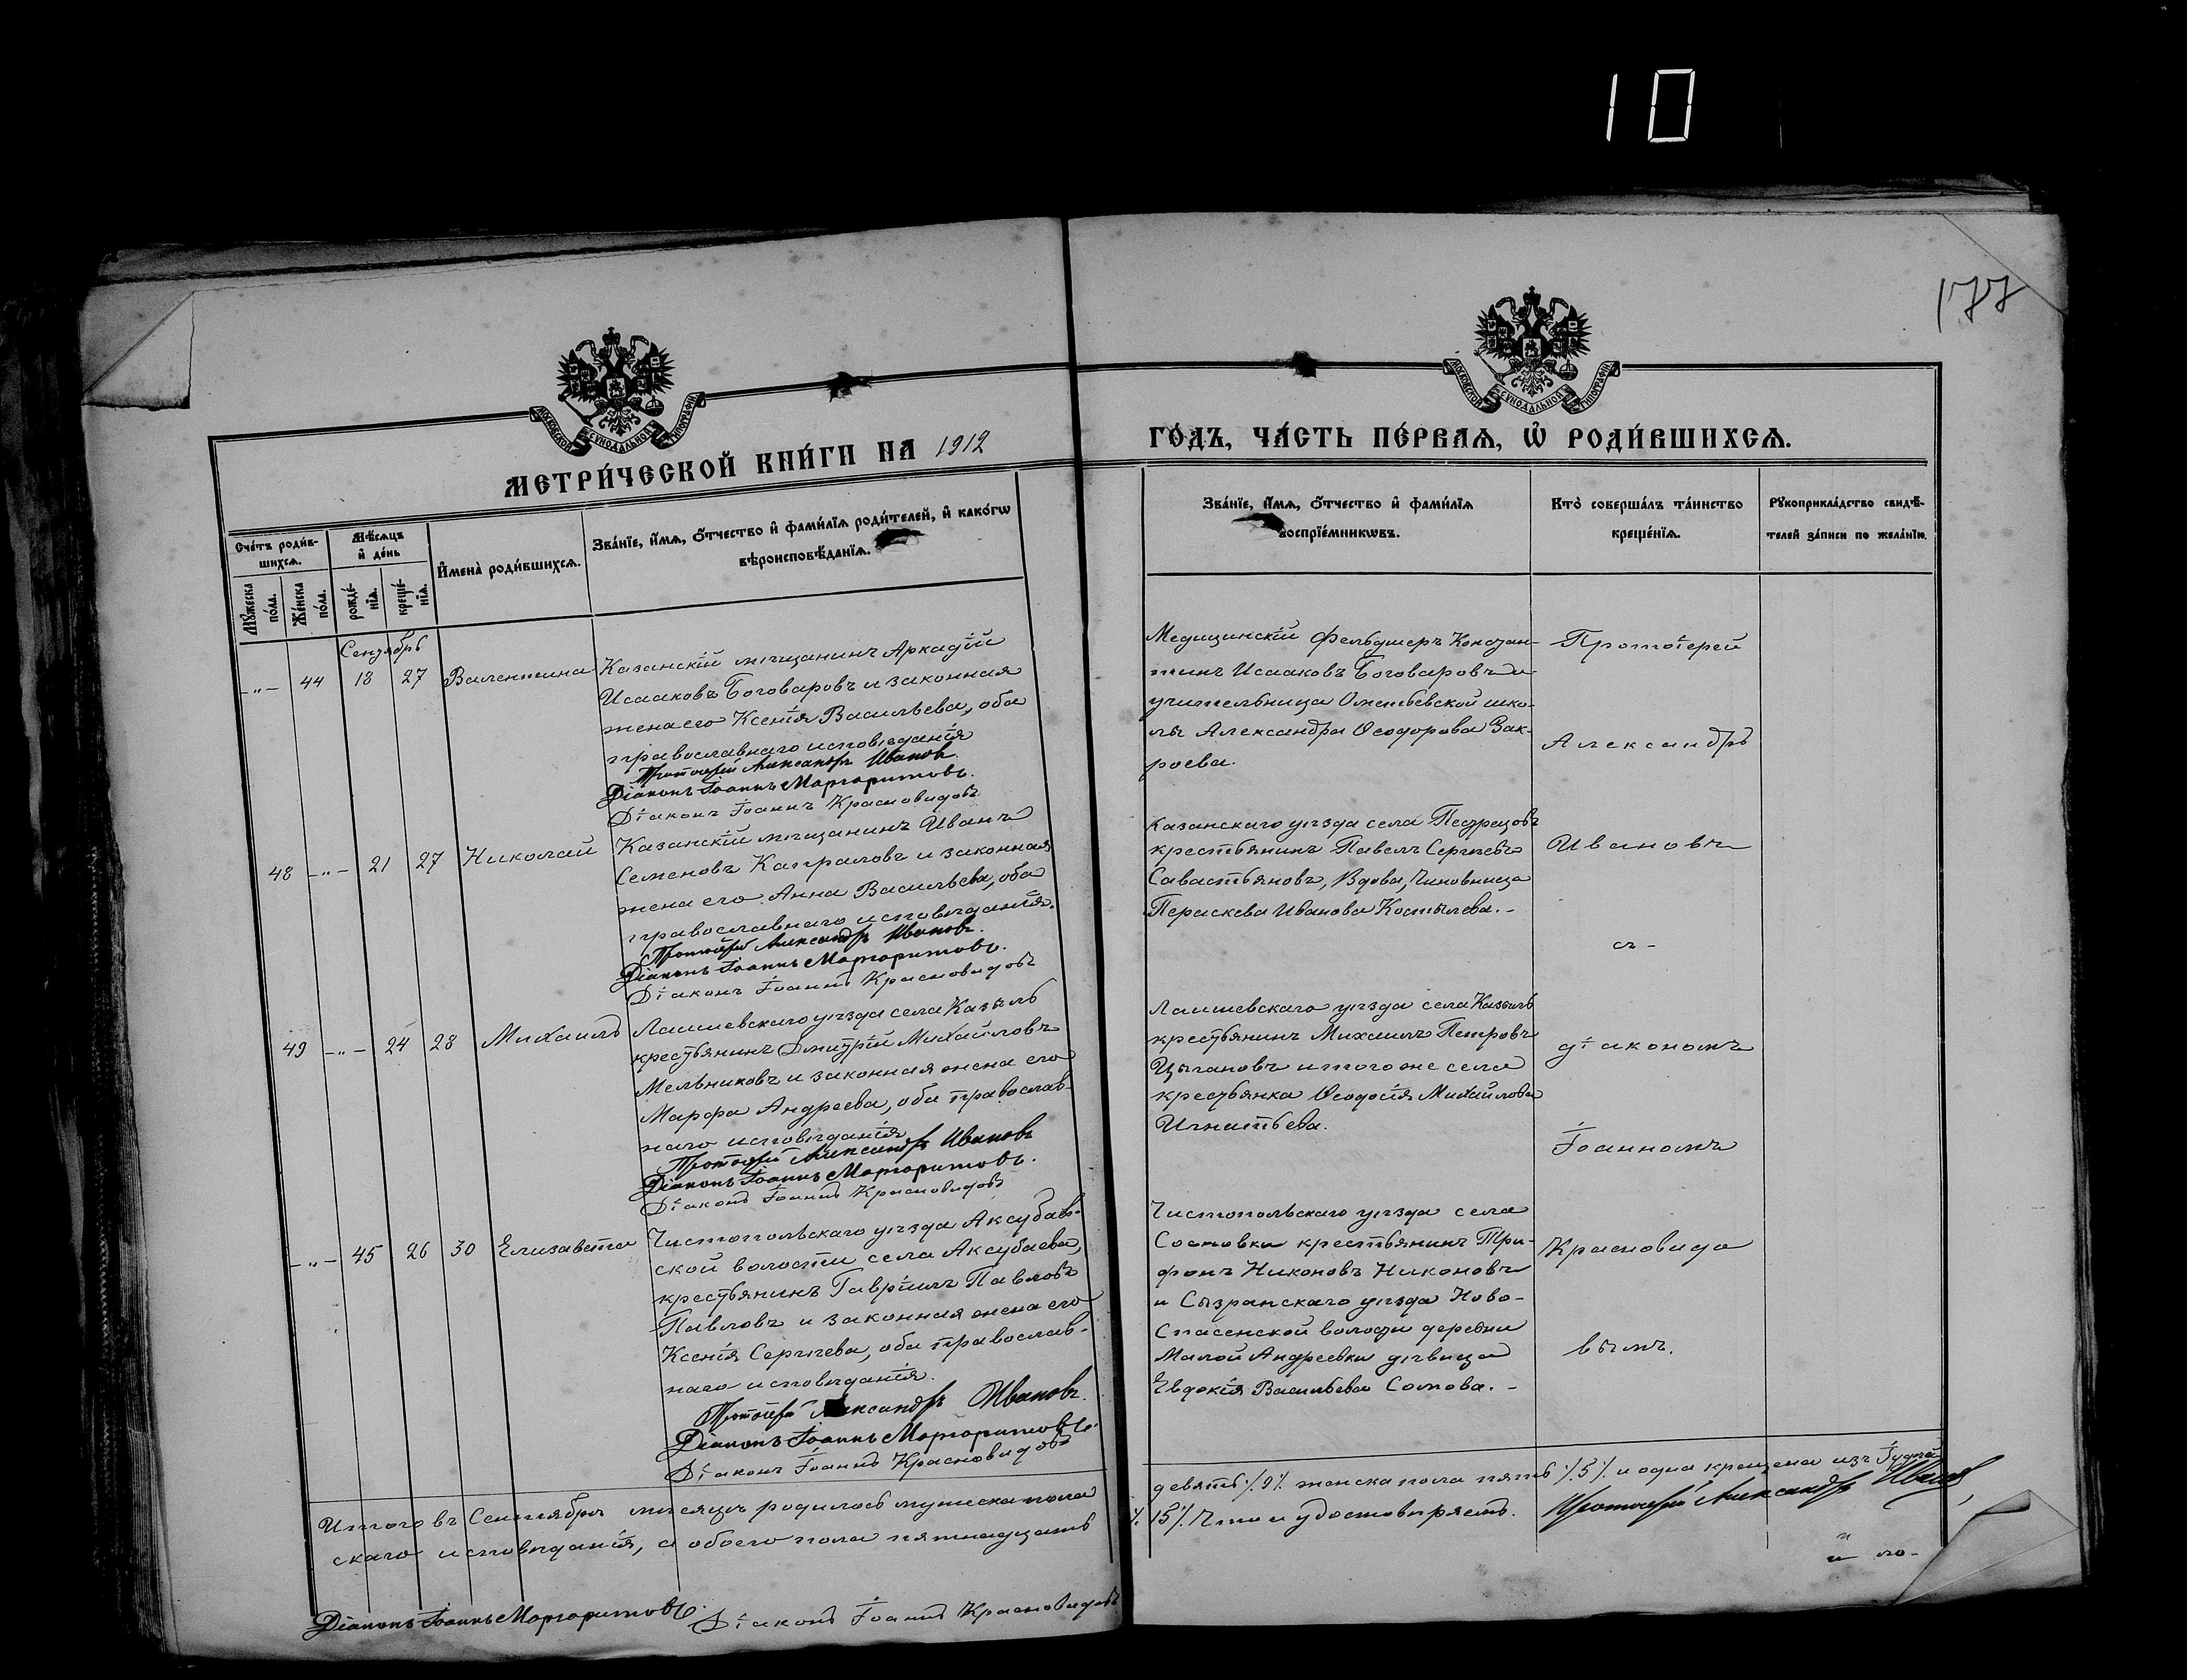 10
177
МОСКОВСКОЙ СѴНОДАЛЬНОЙ ТИПОГРАФІИ
МОСКОВСКОЙ СѴНОДАЛЬНОЙ ТИПОГРАФІИ
МЕТРИ́ЧЕСКОЙ КНИ́ГИ НА 1912
ГО́ДЪ, ЧА́СТЬ ПЕ́РВАѦ, Ѡ҆ РОДИ́ВШИХСѦ.
Сче́тъ роди́в-
шихсѧ.
Мꙋ́жеска
по́ла.
Же́нска
по́ла.
Мѣ́сѧцъ
и҆ де́нь
рожде́-
нїѧ.
креще́-
нїѧ.
И҆мена̀ роди́вшихсѧ.
Зва́нїе, и҆́мѧ, ѻ҆́тчество и҆ фами́лїѧ роди́телей, и҆ како́гѡ
вѣроисповѣ́данїѧ.
Зва́нїе, и҆́мѧ, ѻ҆́тчество и҆ фами́лїѧ
воспрїе́мникѡвъ.
Кто̀ соверша́лъ та́инство
креще́нїѧ.
Рꙋкоприкла́дство свидѣ́-
телей за́писи по жела́нїю.
Сентябрь
-"- 44 18 27 Валентина
Казанскій мѣщанинъ Аркадій
Исааковъ Боговаровъ и законная
жена его Ксенія Васильева, оба
православнаго исповѣданія
Протоіерей Александръ Ивановъ.
Діаконъ Іоаннъ Маргаритовъ.
Діаконъ Іоаннъ Красновидовъ
Медицинскій фельдшеръ Констан-
тинъ Исааковъ Боговаровъ и
учительница школы
лы Александра Ѳеодорова Зак-
роева.
48 -"- 21 27 Николай
Казанскій мѣщанинъ Иванъ
Семеновъ Капраловъ и законная
жена его Анна Васильева, оба
православнаго исповѣданія.
Протоіерей Александръ Ивановъ.
Діаконъ Іоаннъ Маргаритовъ.
Діаконъ Іоаннъ Красновидовъ
Казанскаго уѣзда села Пестрецовъ
крестьянинъ Павелъ Сергѣевъ
Савастьяновъ, Вдова, Чиновница
Пераскева Иванова Костылева. -
49 -"- 24 28 Михаилъ
Лаишевскаго уѣзда села Казыль
крестьянинъ Дмитрій Михайловъ
Мельниковъ и законная жена его
Марфа Андреева, оба православ-
наго исповѣданія
Протоіерей Александръ Ивановъ
Діаконъ Іоаннъ Маргаритовъ.
Діаконъ Іоаннъ Красновидовъ
Лаишевскаго уѣзда села Казыль
крестьянинъ Михаилъ Петровъ
Цыгановъ и того же села
крестьянка Ѳеодосія Михайлова
Игнатьева.
-"- 45 26 30 Елизавета
Чистопольскаго уѣзда Аксубаев-
ской волости села Аксубаева,
крестьянинъ Гавріилъ Павловъ
Павловъ и законная жена его
Ксенія Сергѣева, оба православ-
наго исповѣданія.
Протоіерей Александръ Ивановъ.
Діаконъ Іоаннъ Маргаритовъ.
Діаконъ Іоаннъ Красновидовъ
Чистопольскаго уѣзда села
Сосновки крестьянинъ Три-
фонъ Никоновъ Никоновъ
и Сызранскаго уѣзда Ново-
Спасенской волости деревни
Малой Андреевки дѣвица
Евдокія Васильева Сомова. -
Протоіерей
Александръ
Ивановъ
съ -
діакономъ
Іоанномъ
Красновидо
вымъ.
Итого въ Сентябрѣ мѣсяцѣ родилось мужеска пола
девять /.9/. женска пола пять /.5/. и одна крещена изъ Іудей
скаго исповѣданія, а обоего пола пятнадцать
/.15/. Что и удостовѣряемъ. Протоіерей Александръ Ивановъ
Діаконъ Іоаннъ Маргаритовъ. Діаконъ Іоаннъ Красновидовъ